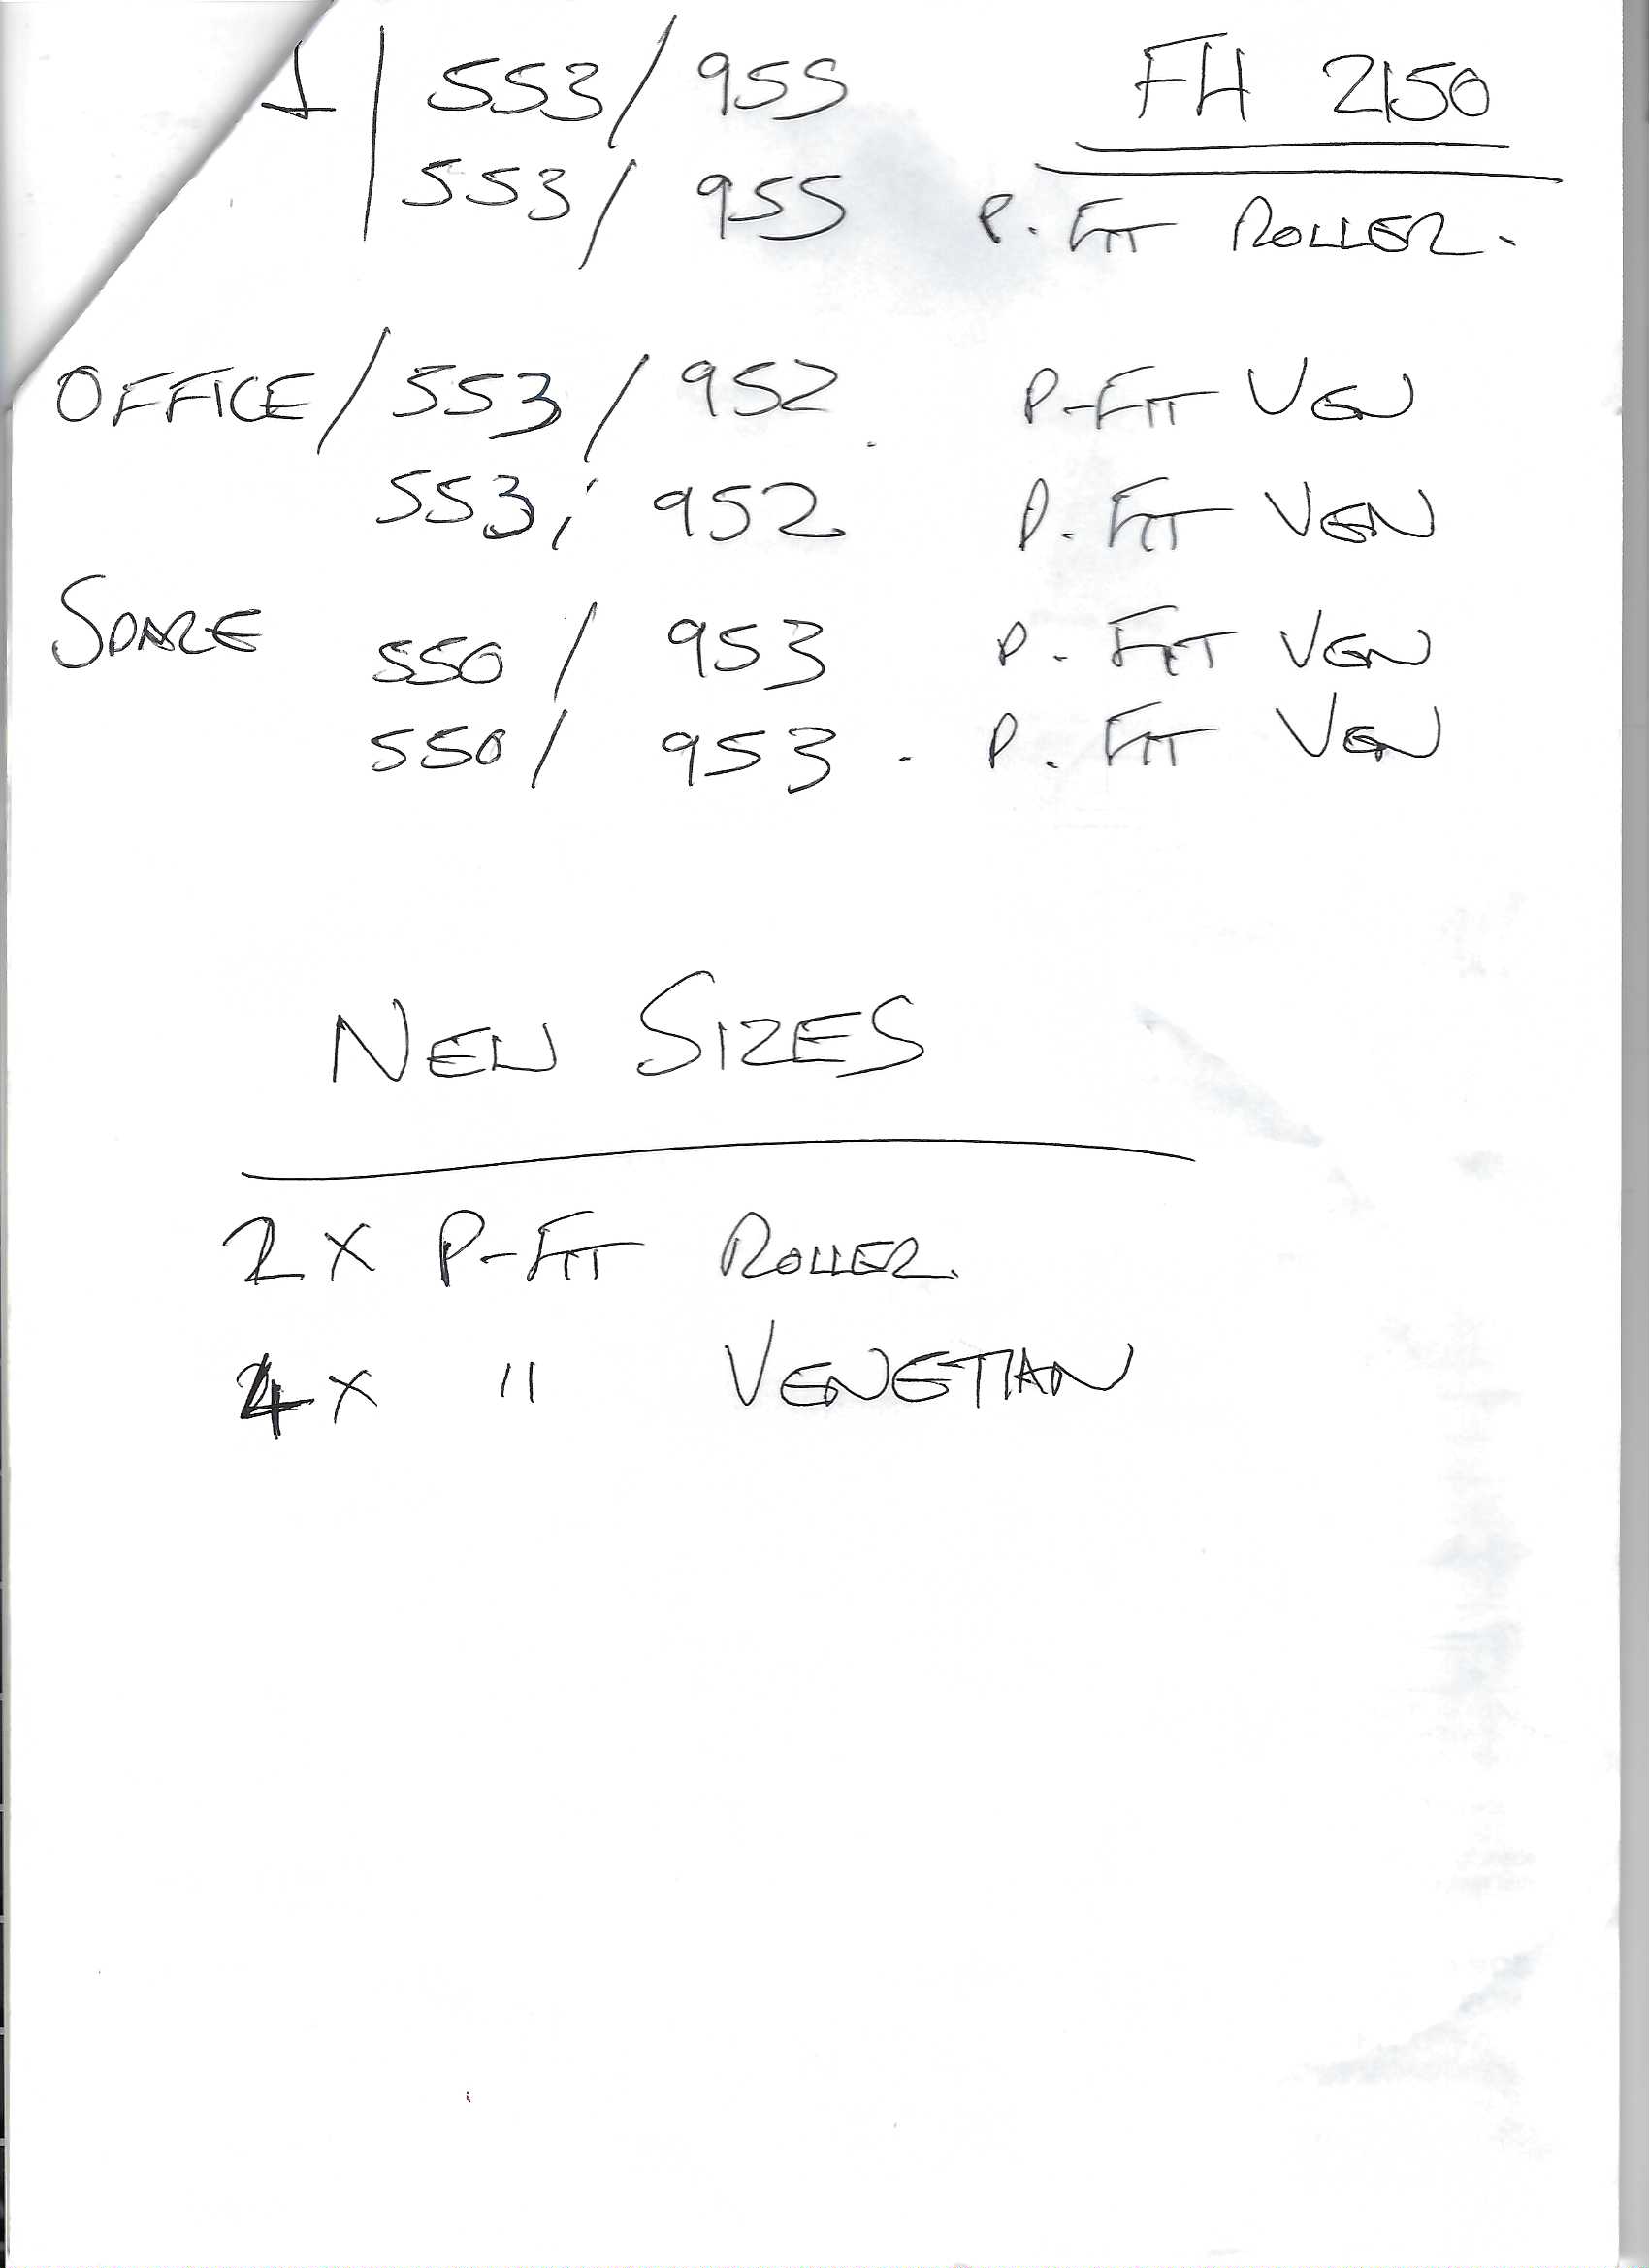 1 / 553 / 955 FH 2150
553 / 955 P. FIT ROLLER.
OFFICE / 553 / 952. P-FIT VEN
553 / 952 P. FIT VEN
SPARE 550 / 953 P. FIT VEN
550 / 953. P. FIT VEN
NEW SIZES
2 X P-FIT ROLLER.
4 X " VENETIAN